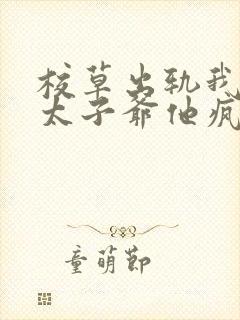 校草出轨我
太子爷他疯
童萌节